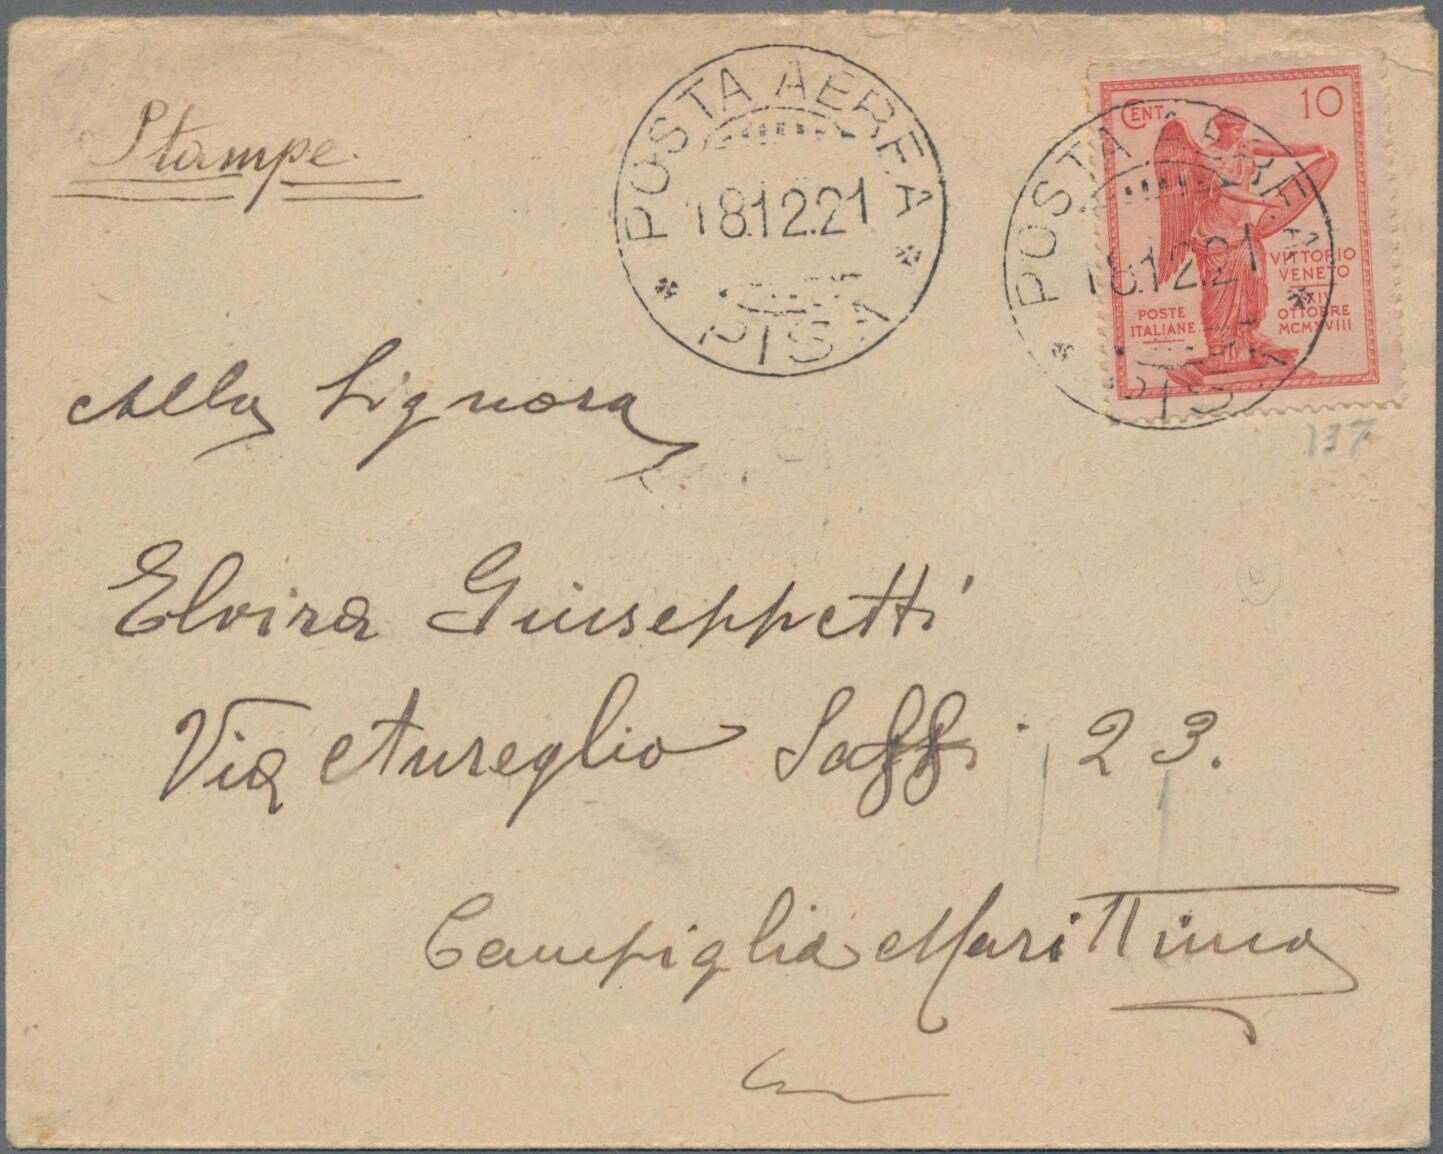 Stampe.
POSTA AEREA
18.12.21
PISA
CENT. 10
VITTORIO
VENETO
XXIV
OTTOBRE
MCMXVIII
POSTE
ITALIANE
POSTA AEREA
18.12.21
PISA
137
Alla Signora
Elvira Giuseppetti
Via Aureglio Saffi 23.
Campiglia Marittima